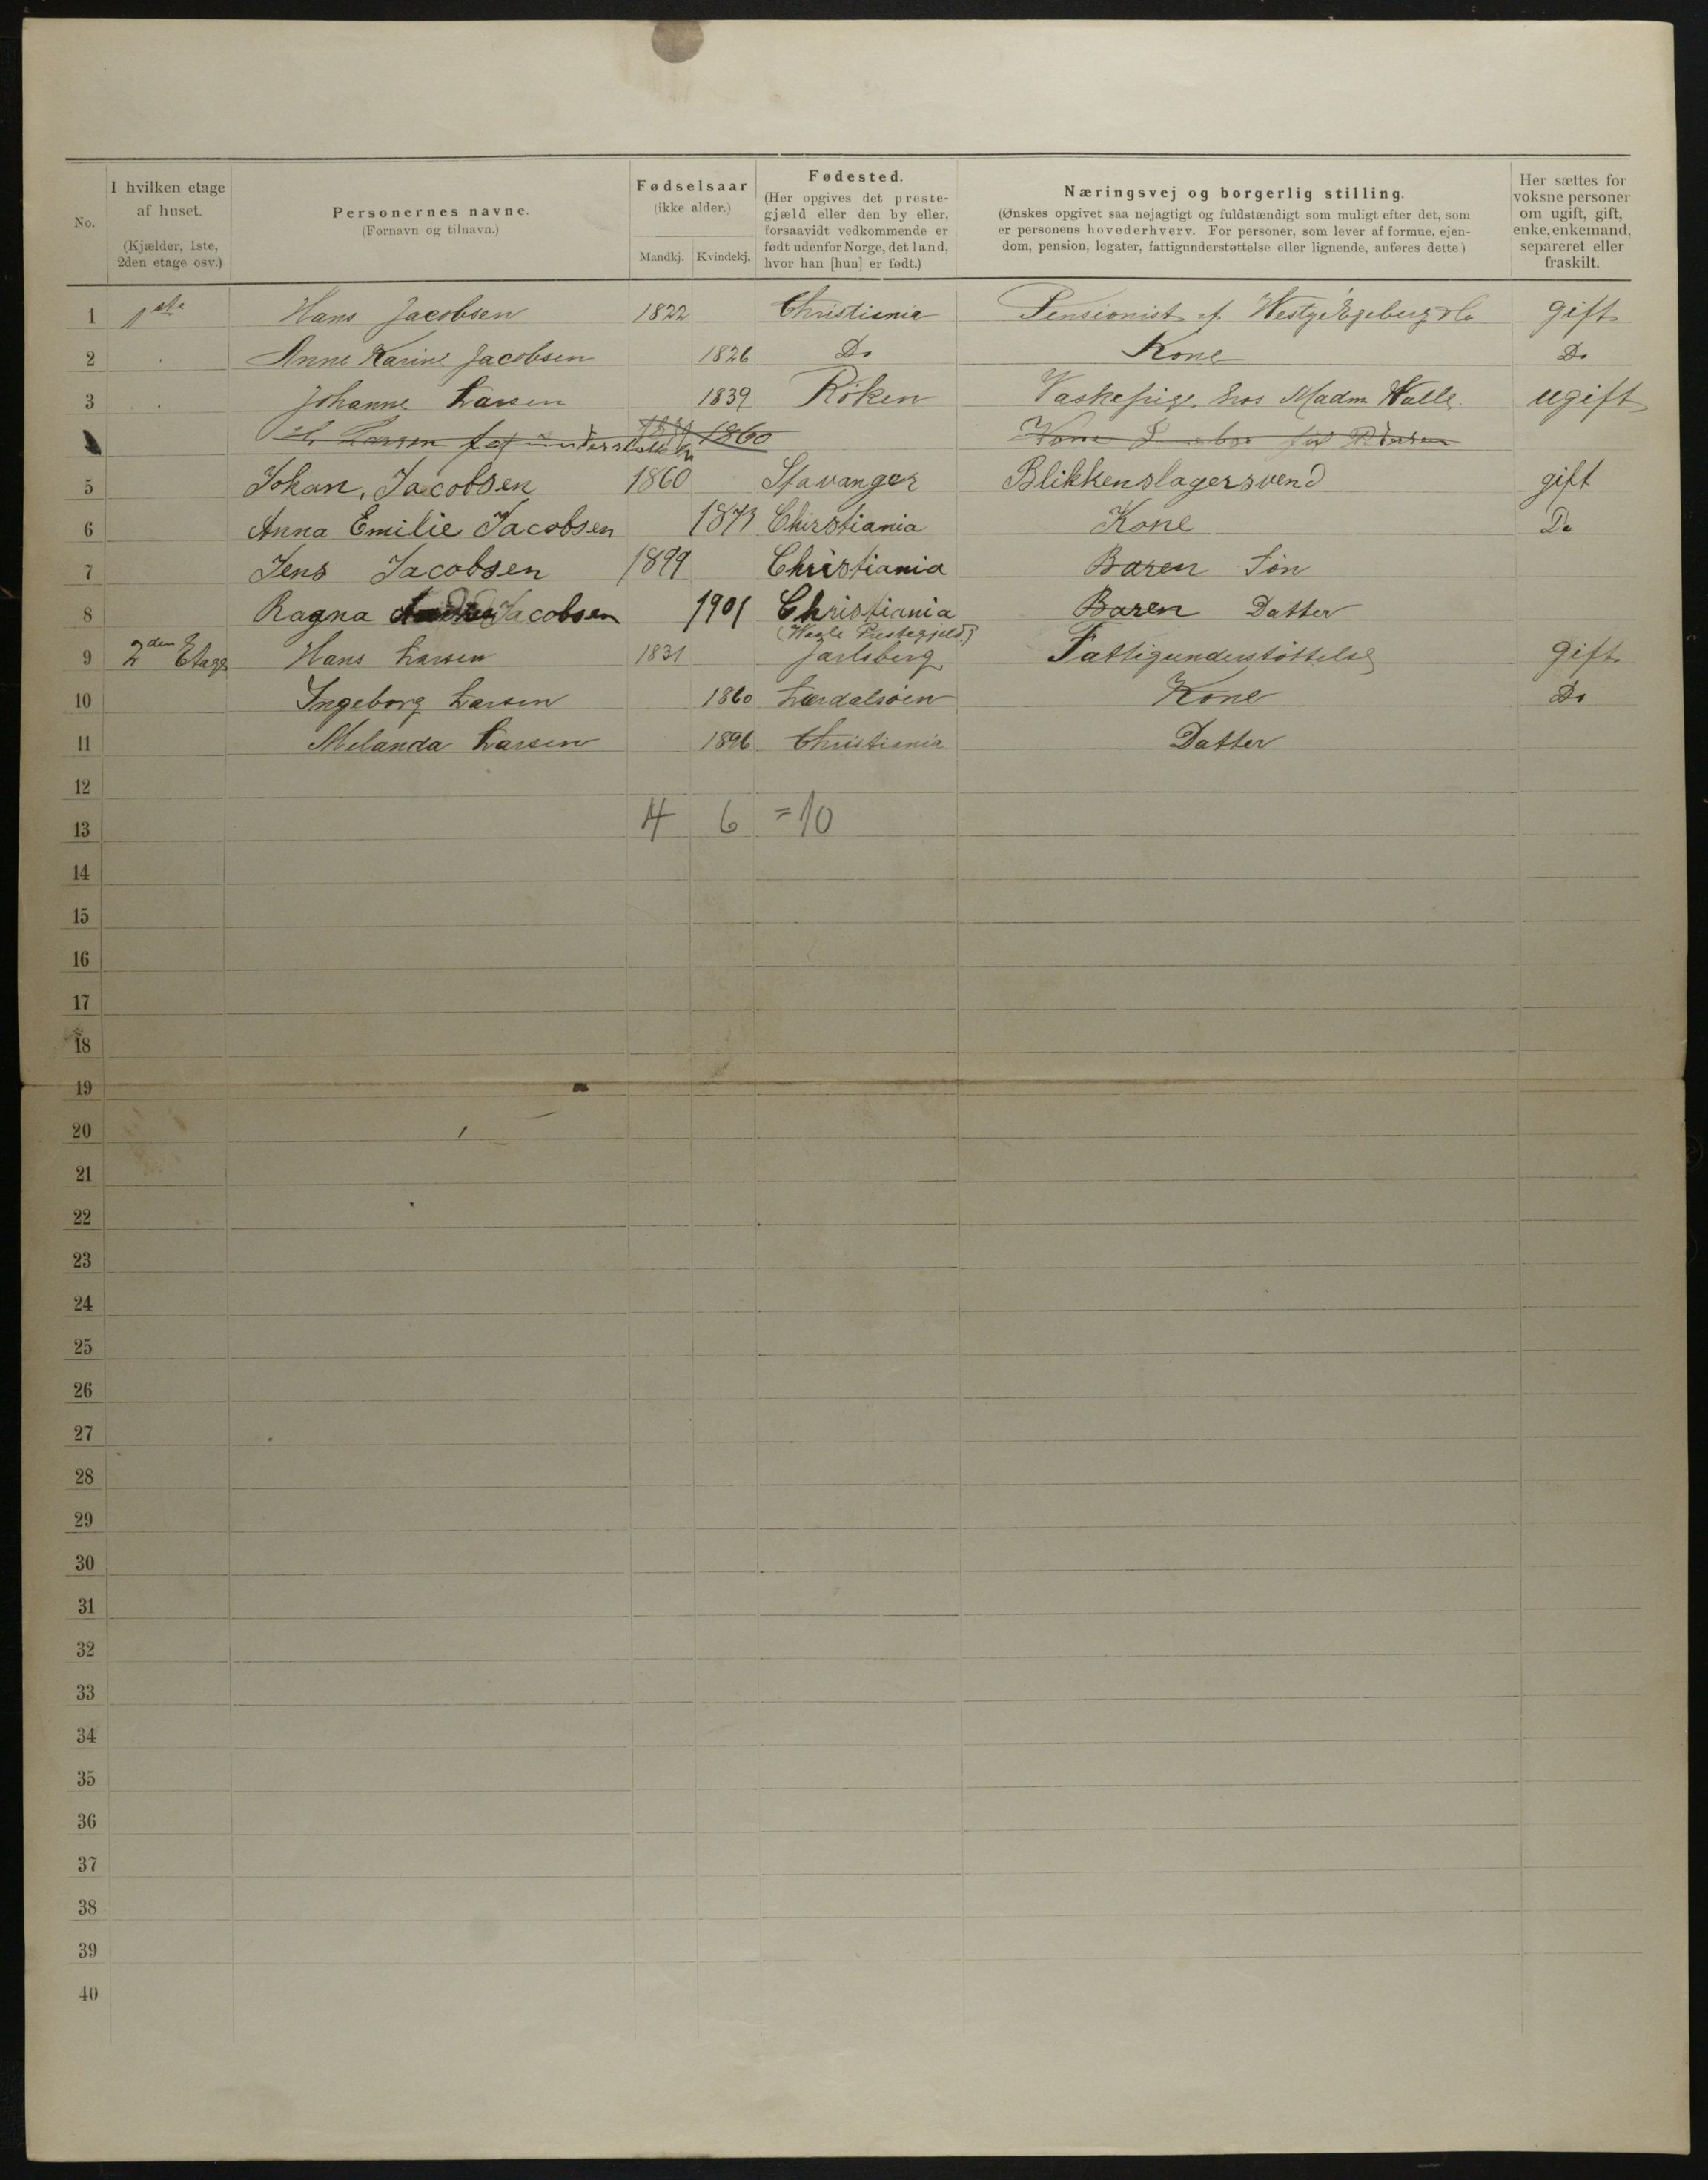 No.
I hvilken etage
af huset.
(Kjælder, 1ste,
2den etage osv.)
Personernes navne.
(Fornavn og tilnavn.)
Fødselsaar
(ikke alder.)
Mandkj. Kvindekj.
Fødested.
(Her opgives det preste-
gjæld eller den by eller,
forsaavidt vedkommende er
født udenfor Norge, det land,
hvor han [hun] er født.)
Næringsvej og borgerlig stilling.
(Ønskes opgivet saa nøjagtigt og fuldstændigt som muligt efter det, som
er personens hovederhverv. For personer, som lever af formue, ejen-
dom, pension, legater, fattigunderstøttelse eller lignende, anføres dette.)
Her sættes for
voksne personer
om ugift, gift,
enke, enkemand,
separeret eller
fraskilt.
1 1ste Hans Jacobsen 1822 Christiania Pensionist af Westye Egeberg & Co gift
2 Anne Karine Jacobsen 1826 Do Kone Do
3 Johanne Larsen 1839 Röken Vaskepige hos Madm Walle. ugift
Larsen 1860 Kone
5 Johan, Jacobsen 1860 Stavanger Blikkenslagersvend gift
6 Anna Emilie Jacobsen 1873 Chirstiania Kone Do
7 Jens Jacobsen 1899 Christiania Baren Søn
8 Ragna Jacobsen 1901 Christiania Baren Datter
(Prestegjeld)
9 2den Etage Hans Larsen 1831 Jarlsberg Fattigunderstøttelse gift
10 Ingeborg Larsen 1860 Lærdalsöen Kone Do
11 Melanda Larsen 1896 Christiania Datter
12
13 4 6 =10
14
15
16
17
18
19
20
21
22
23
24
25
26
27
28
29
30
31
32
33
34
35
36
37
38
39
40